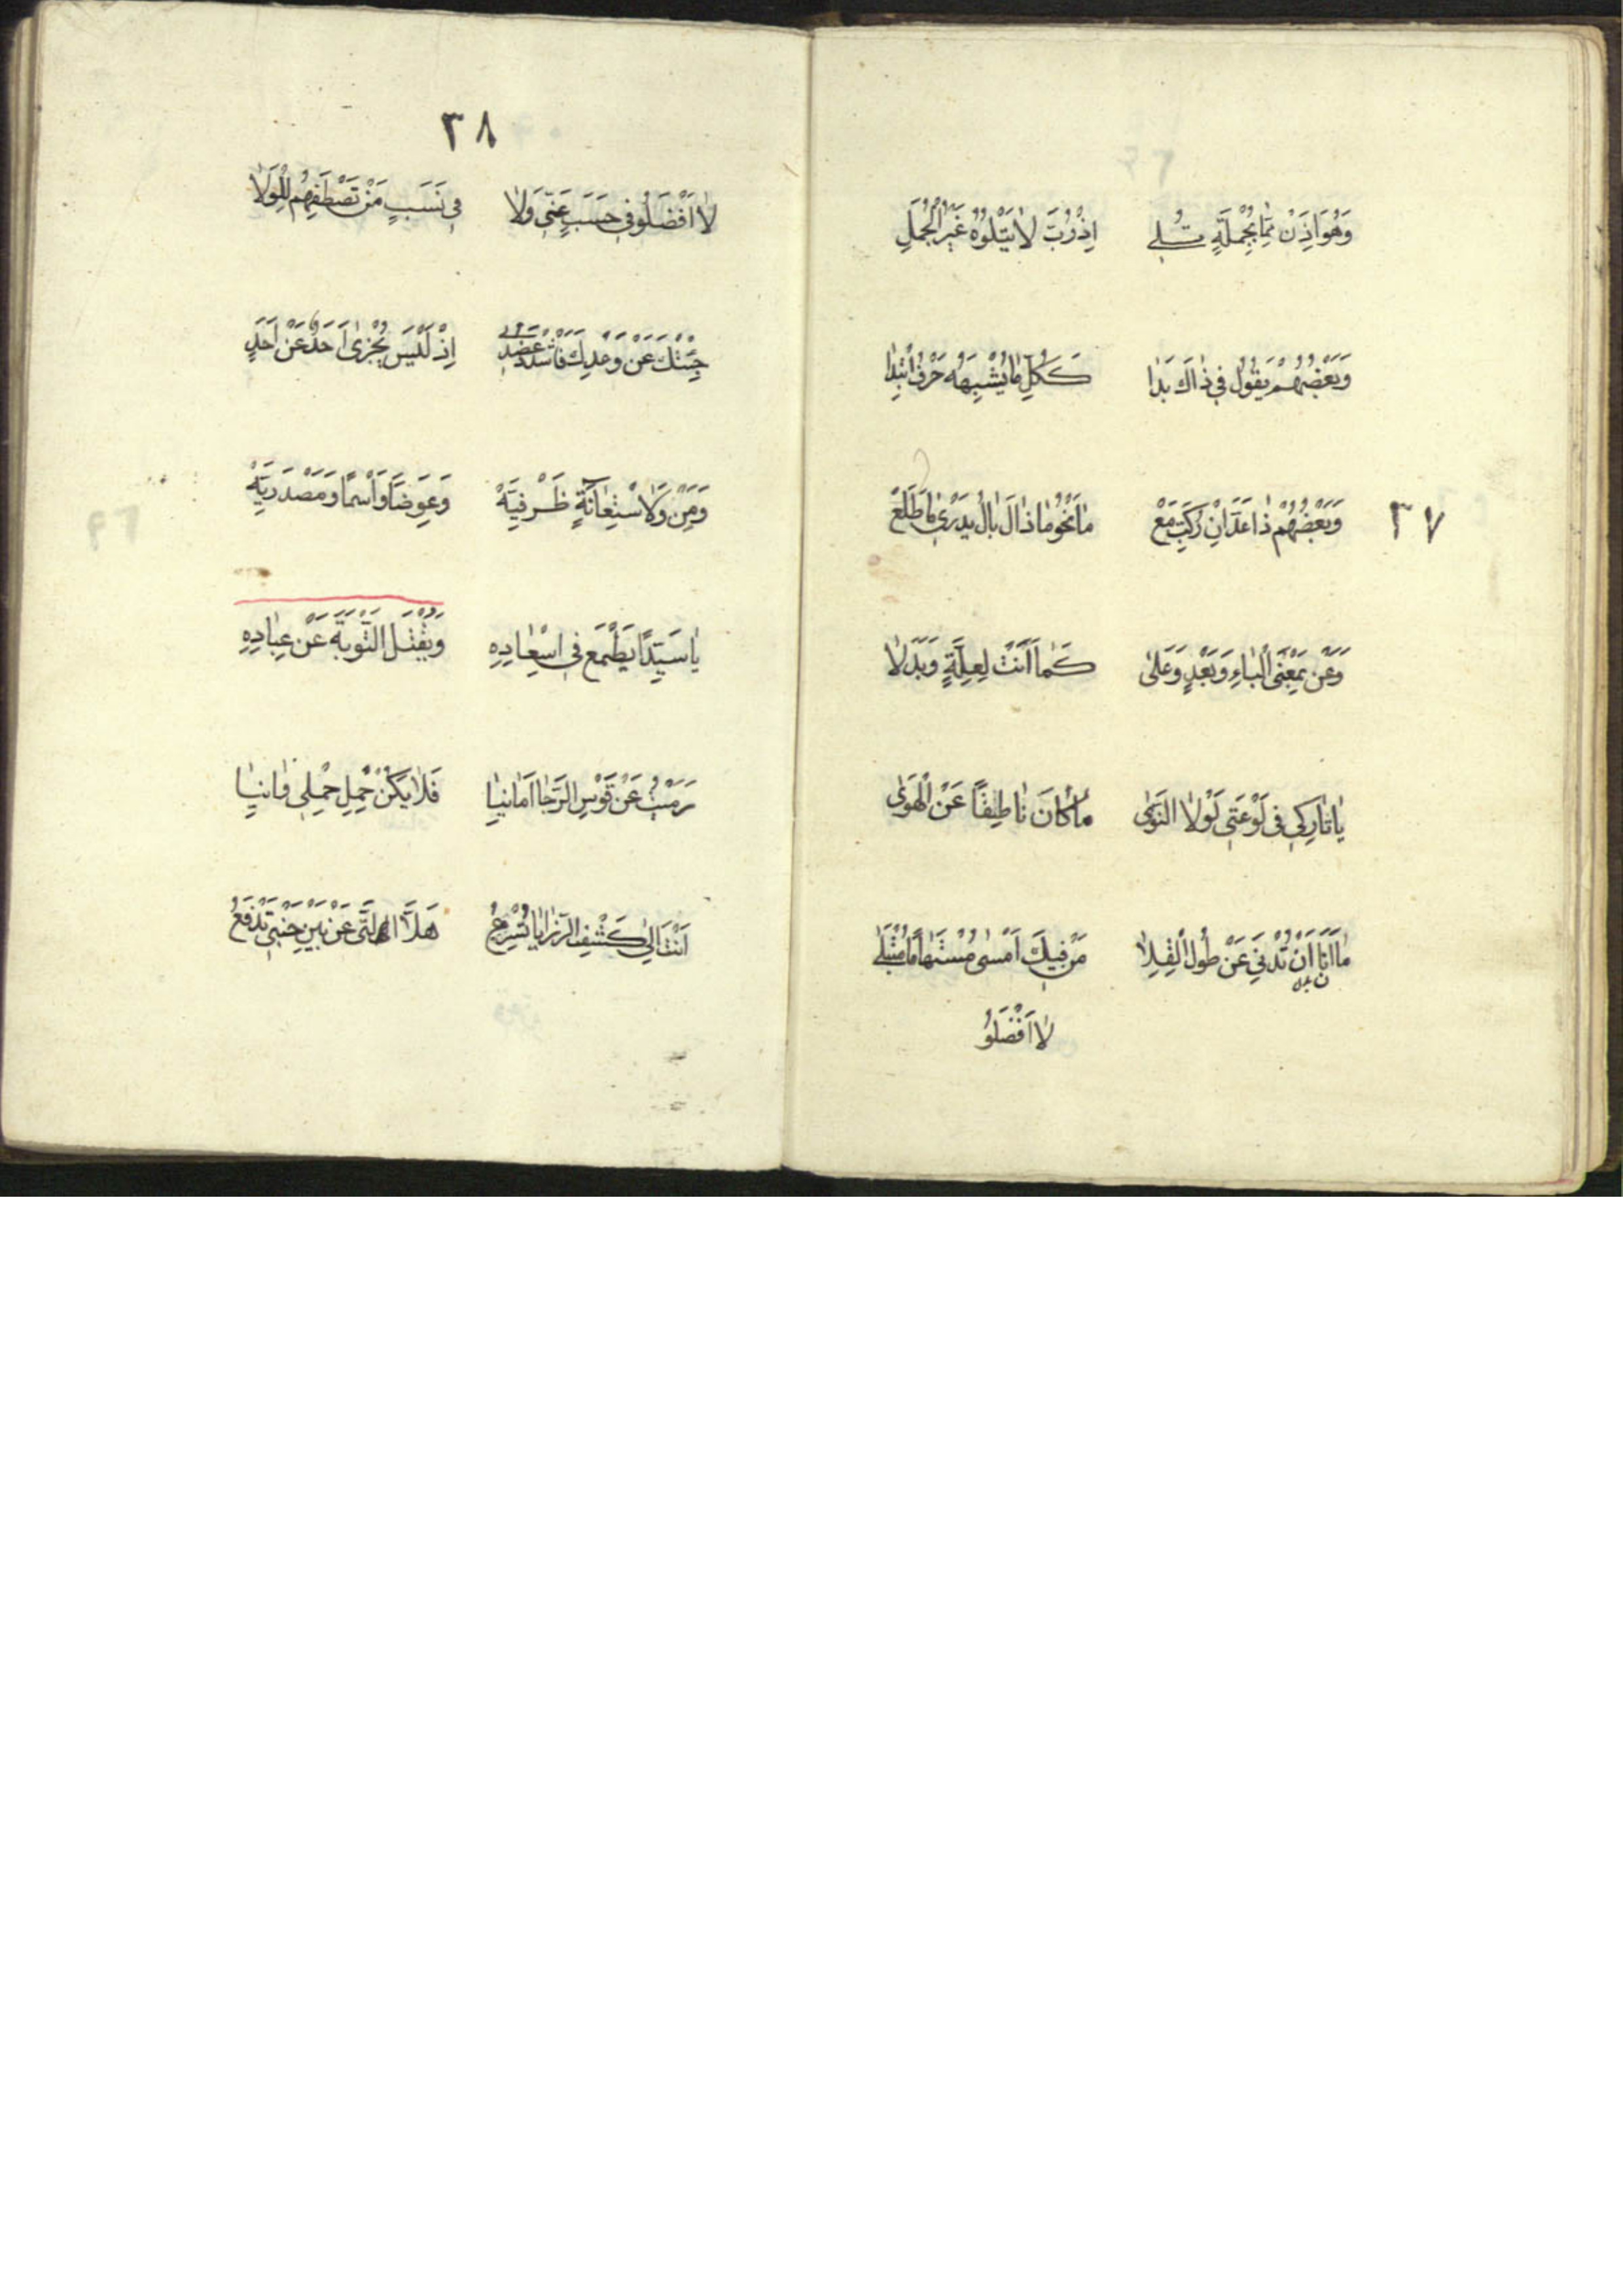 وَهُوَ اِذَنْ مِمَّا بِجُمْلَةٍ تُلِى اِذْ رُبَّ لَا يَتْلُوهُ غَيْرُ الْجُمَلِ
وَبَعْضُهُمْ يَقُولُ فِي ذَاكَ بَدَا كَكُلِّ مَا يُشْبِهُهُ حَرْفُ اَبْتِدَا
٣٧
وَبَعْضُهُمْ ذَا عَدَّ اَنْ رُكِّبَ مَعْ مَا نَحْوُ مَاذَا لَ بَالُ بَدْرِي مَا طَلَعْ
وَعَنْ بِمَعْنَى الْبَاءِ وَبَعْدٍ وَعَلَى كَمَا اَنَتْ لِعِلَّةٍ وَبَدَلَا
يَا تَارِكِي فِي لَوْعَتِي لَوْلَا النَّوَى مَا كَانَ نَاطِقًا عَنْ الْهَوَى
مَا اَنَا اَنْ تُدْنِيَ عَنْ طُولِ الْقِلَا مَنْ فِيكَ اَمْسَى مُسْتَهَامًا مُبْتَلَى
لَا اَفْضَلُوا
٣٨
لَا اَفْضَلُوا فِي حَسَبٍ عَنِّي وَلَا فِي نَسَبٍ مَنْ تَصْطَفِيهُم لِلْوَلَا
جِئْتُكَ عَنْ وَعْدِكَ فَاشْدُدْ عَضُدِي اِذْ لَيْسَ يُجْزَى اَحَدٌ عَنْ اَحَدِ
وَمِنْ وَلَاسْتِعَانَةٍ ظَرْفِيَّهْ وَعِوَضًا وَاسْمًا وَمَصْدَرِيَّهْ
يَا سَيِّدًا يَطْمَع فِي اسْعَادِهِ وَيَقْبَلُ التَّوْبَةَ عَنْ عِبَادِهِ
رَمَيْتُ عَنْ قَوْسِ الرَّجَا اَمَانِيَا فَلَا يَكُنْ حَمْلِي وَانِيَا
اَنْتَ اِلَى كَشْفِ الرَّزَايَا تُسْرِعُ هَلَّا الَّتِي عَنْ بَيْنِ جَنْبَيْ تَدْفَعُ